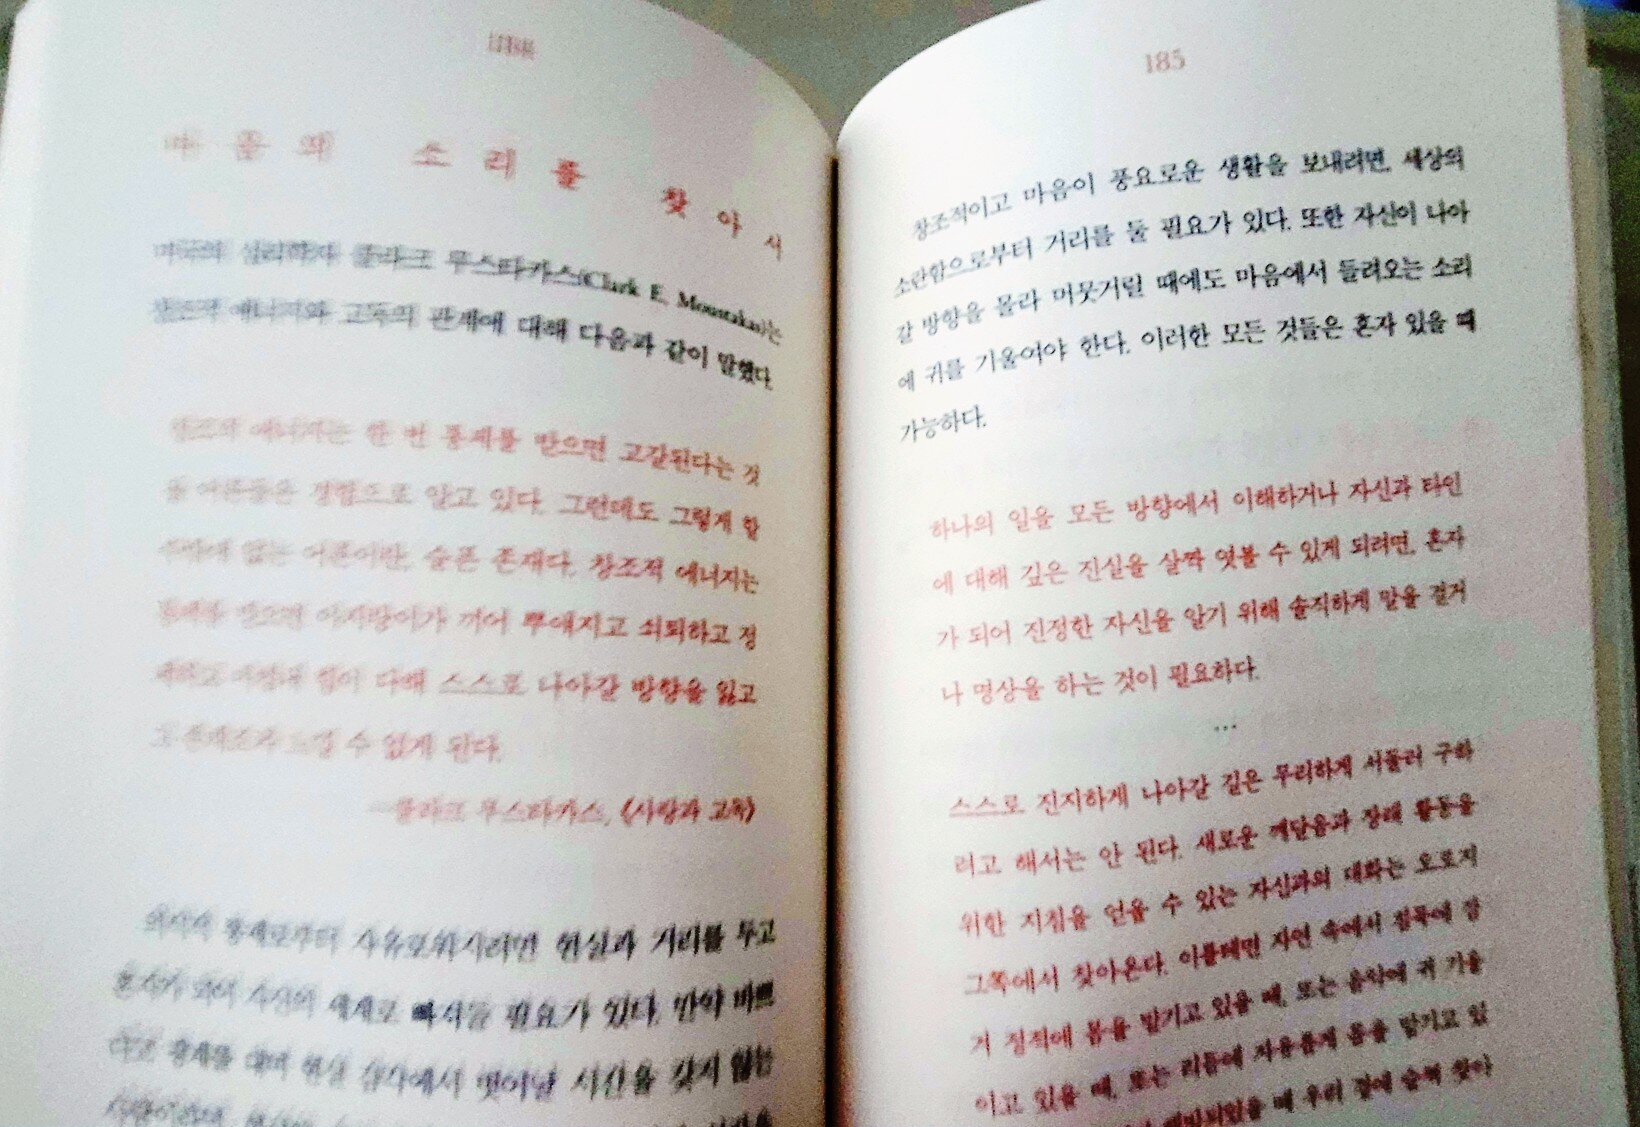 마음의 소리를 찾아서
미국의 심리학자 클라크 무스타카스(Clark E. Moustakas)는
창조적 에너지와 고독의 관계에 대해 다음과 같이 말했다.
창조적 에너지는 한 번 통제를 받으면 고갈된다는 것
을 어른들은 경험으로 알고 있다. 그런데도 그렇게 할
수밖에 없는 어른이란, 슬픈 존재다. 창조적 에너지는
통제를 받으면 아지랑이가 끼어 뿌예지고 쇠퇴하고 정
힘이 다해 스스로 나아갈 방향을 잃고
수 없게 된다.
—클라크 무스타카스, 《사랑과 고독》
통제로부터 자유로워지려면 현실과 거리를 두고
혼자가 되어 자신의 세계로 빠져들 필요가 있다. 만약 바쁘
다고 핑계를 대며 현실 감각에서 벗어날 시간을 갖지 않는
185
창조적이고 마음이 풍요로운 생활을 보내려면, 세상의
소란함으로부터 거리를 둘 필요가 있다. 또한 자신이 나아
갈 방향을 몰라 머뭇거릴 때에도 마음에서 들려오는 소리
에 귀를 기울여야 한다. 이러한 모든 것들은 혼자 있을 때
가능하다.
하나의 일을 모든 방향에서 이해하거나 자신과 타인
에 대해 깊은 진실을 살짝 엿볼 수 있게 되려면, 혼자
가 되어 진정한 자신을 알기 위해 솔직하게 말을 걸거
나 명상을 하는 것이 필요하다.
…
스스로 진지하게 나아갈 길은 무리하게 서둘러 구하
려고 해서는 안 된다. 새로운 깨달음과 장래 활동을
위한 지침을 얻을 수 있는 자신과의 대화는 오로지
그쪽에서 찾아온다. 이를테면 자연 속에서 침묵에 잠
겨 정적에 몸을 맡기고 있을 때, 또는 음악에 귀 기울
이고 있을 때, 또는 리듬에 자유롭게 몸을 맡기고 있
때 우리 곁에 슬쩍 찾아